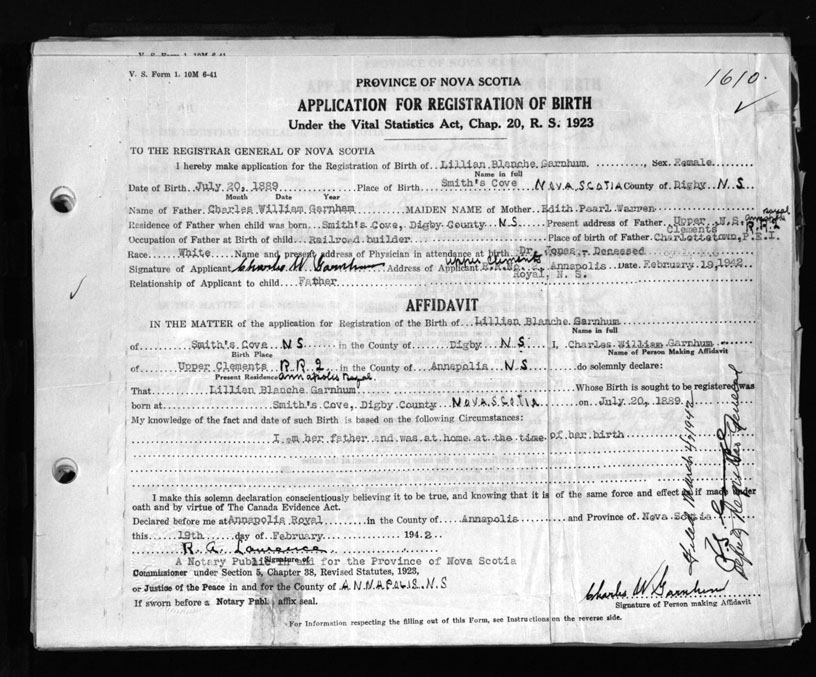 V. S. Form 1. 10M 6-41
1610.
PROVINCE OF NOVA SCOTIA
APPLICATION FOR REGISTRATION OF BIRTH
Under the Vital Statistics Act, Chap. 20, R. S. 1923
TO THE REGISTRAR GENERAL OF NOVA SCOTIA
I hereby make application for the Registration of Birth of Lillian Blanche Garnhum, Sex Female
Name in full
Date of Birth July 20, 1889 Place of Birth Smith's Cove NOVA SCOTIA County of Digby N S
Month Date Year
Name of Father Charles William Garnham MAIDEN NAME of Mother Edith Pearl Warren
Residence of Father when child was born Smith's Cove, Digby County N S Present address of Father Upper Clements N.S. Annapolis Royal R.R.2
Occupation of Father at Birth of child Railroad builder Place of birth of Father Charlottetown, P.E.I
Race White Name and present address of Physician in attendance at birth Dr. Jones - Deceased
Signature of Applicant Charles W. Garnhum Address of Applicant Upper Clements Annapolis Royal, N. S. Date February 19, 1942
Relationship of Applicant to child Father
AFFIDAVIT
IN THE MATTER of the application for Registration of the Birth of Lillian Blanche Garnhum
Name in full
of Smith's Cove N S in the County of Digby N S. I, Charles William Garnhum
Birth Place Name of Person Making Affidavit
of Upper Clements R R 2 in the County of Annapolis N S do solemnly declare:
Present Residence Annapolis Royal
That Lillian Blanche Garnhum Whose Birth is sought to be registered was
born at Smith's Cove, Digby County NOVA SCOTIA on July 20, 1889
My knowledge of the fact and date of Birth is based on the following Circumstances:
I am her father and was at home at the time of her birth
I make this solemn declaration conscientiously believing it to be true, and knowing that it is of the same force and effect as if made under
oath and by virtue of The Canada Evidence Act.
Declared before me at Annapolis Royal in the County of Annapolis and Province of Nova Scotia
this 19th day of February 1942
R. A. Lawrence
Signature of
A Notary Public in and for the Province of Nova Scotia
Commissioner under Section 5, Chapter 38, Revised Statutes, 1923,
or Justice of the Peace in and for the County of ANNAPOLIS N.S
If sworn before a Notary Publ affix seal.
Charles W Garnhum
Signature of Person making Affidavit
For Information respecting the filling out of this Form, see Instructions on the reverse side.
Filed March 4/1942
Deputy Registrar General